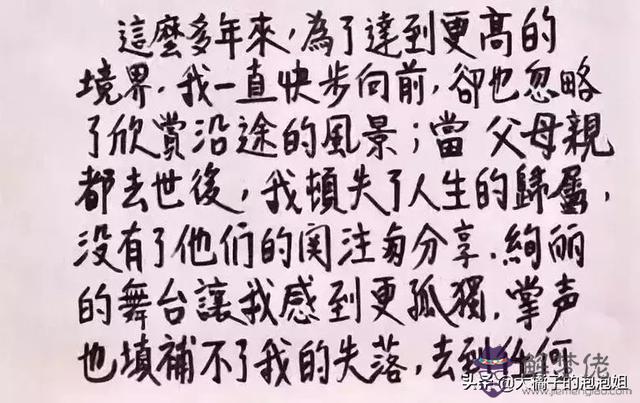 這麼多年來，為了達到更高的
境界，我一直快步向前，卻也忽略
了欣賞沿途的風景；當父母親
都去世後，我頓失了人生的歸屬，
没有了他们的関注与分享，絢丽
的舞台讓我感到更孤獨，掌声
也填補不了我的失落，去到任何
解梦佬
头条@大橘子的泡泡姐
www.jiemenglao.com